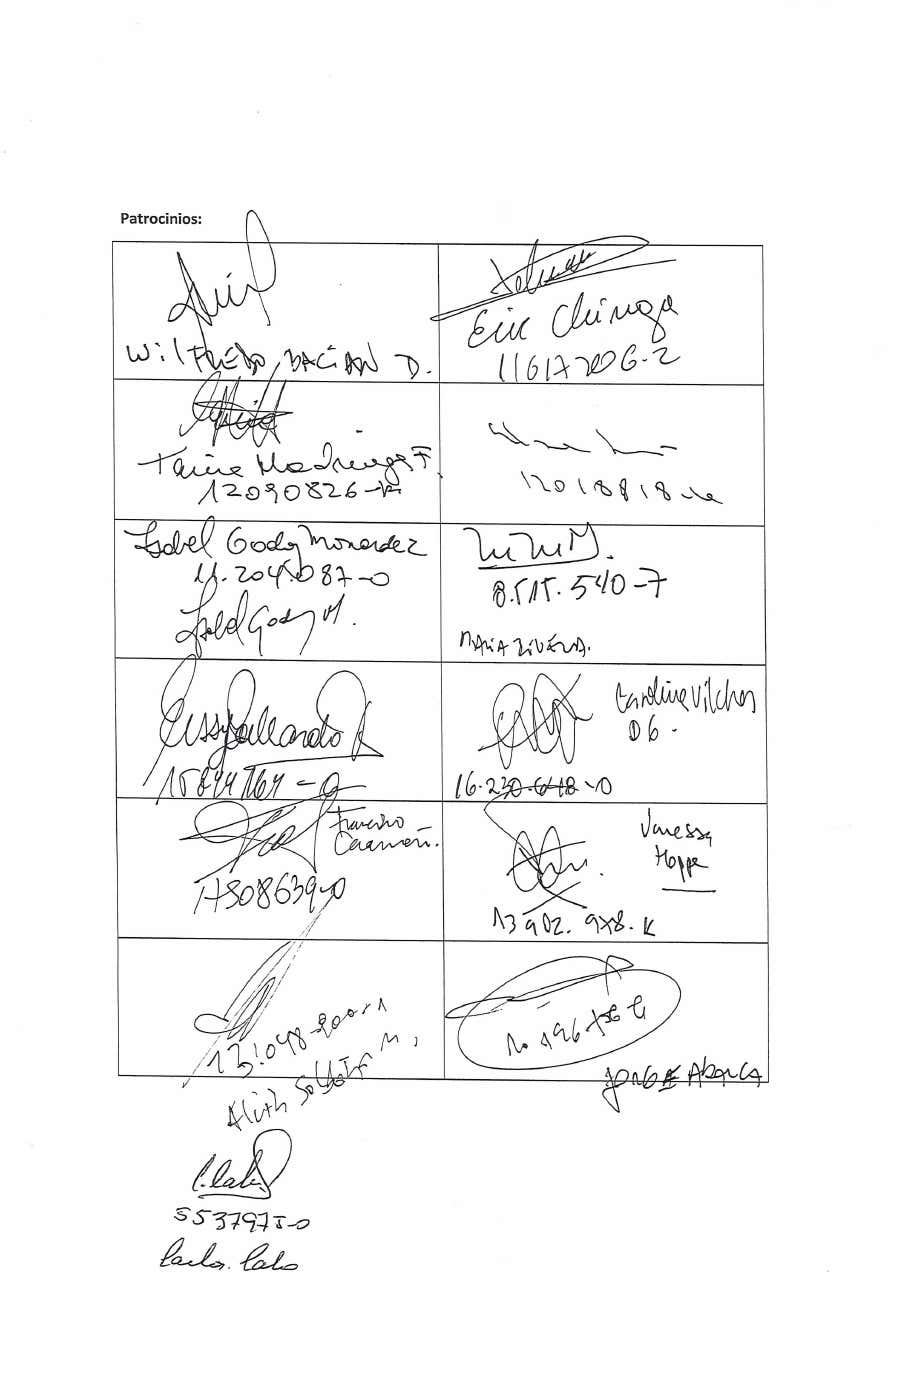 Patrocinios:
Wilfredo Bacian D.
Eric Chinga
11617206-2
Tania Madriaga F.
12090826-K
12018818-K
Isabel Godoy Monardez
11.204.087-0
Isabel Godoy M.
8.515.540-7
Maria Rivera.
Lissy Gallardo
Carolina Vilches
D6.
16.230.618-0
Francisco Caamaño.
17308639-0
Vanessa Hoppe
13902.978.K
Jorge Abarca
5537975-0